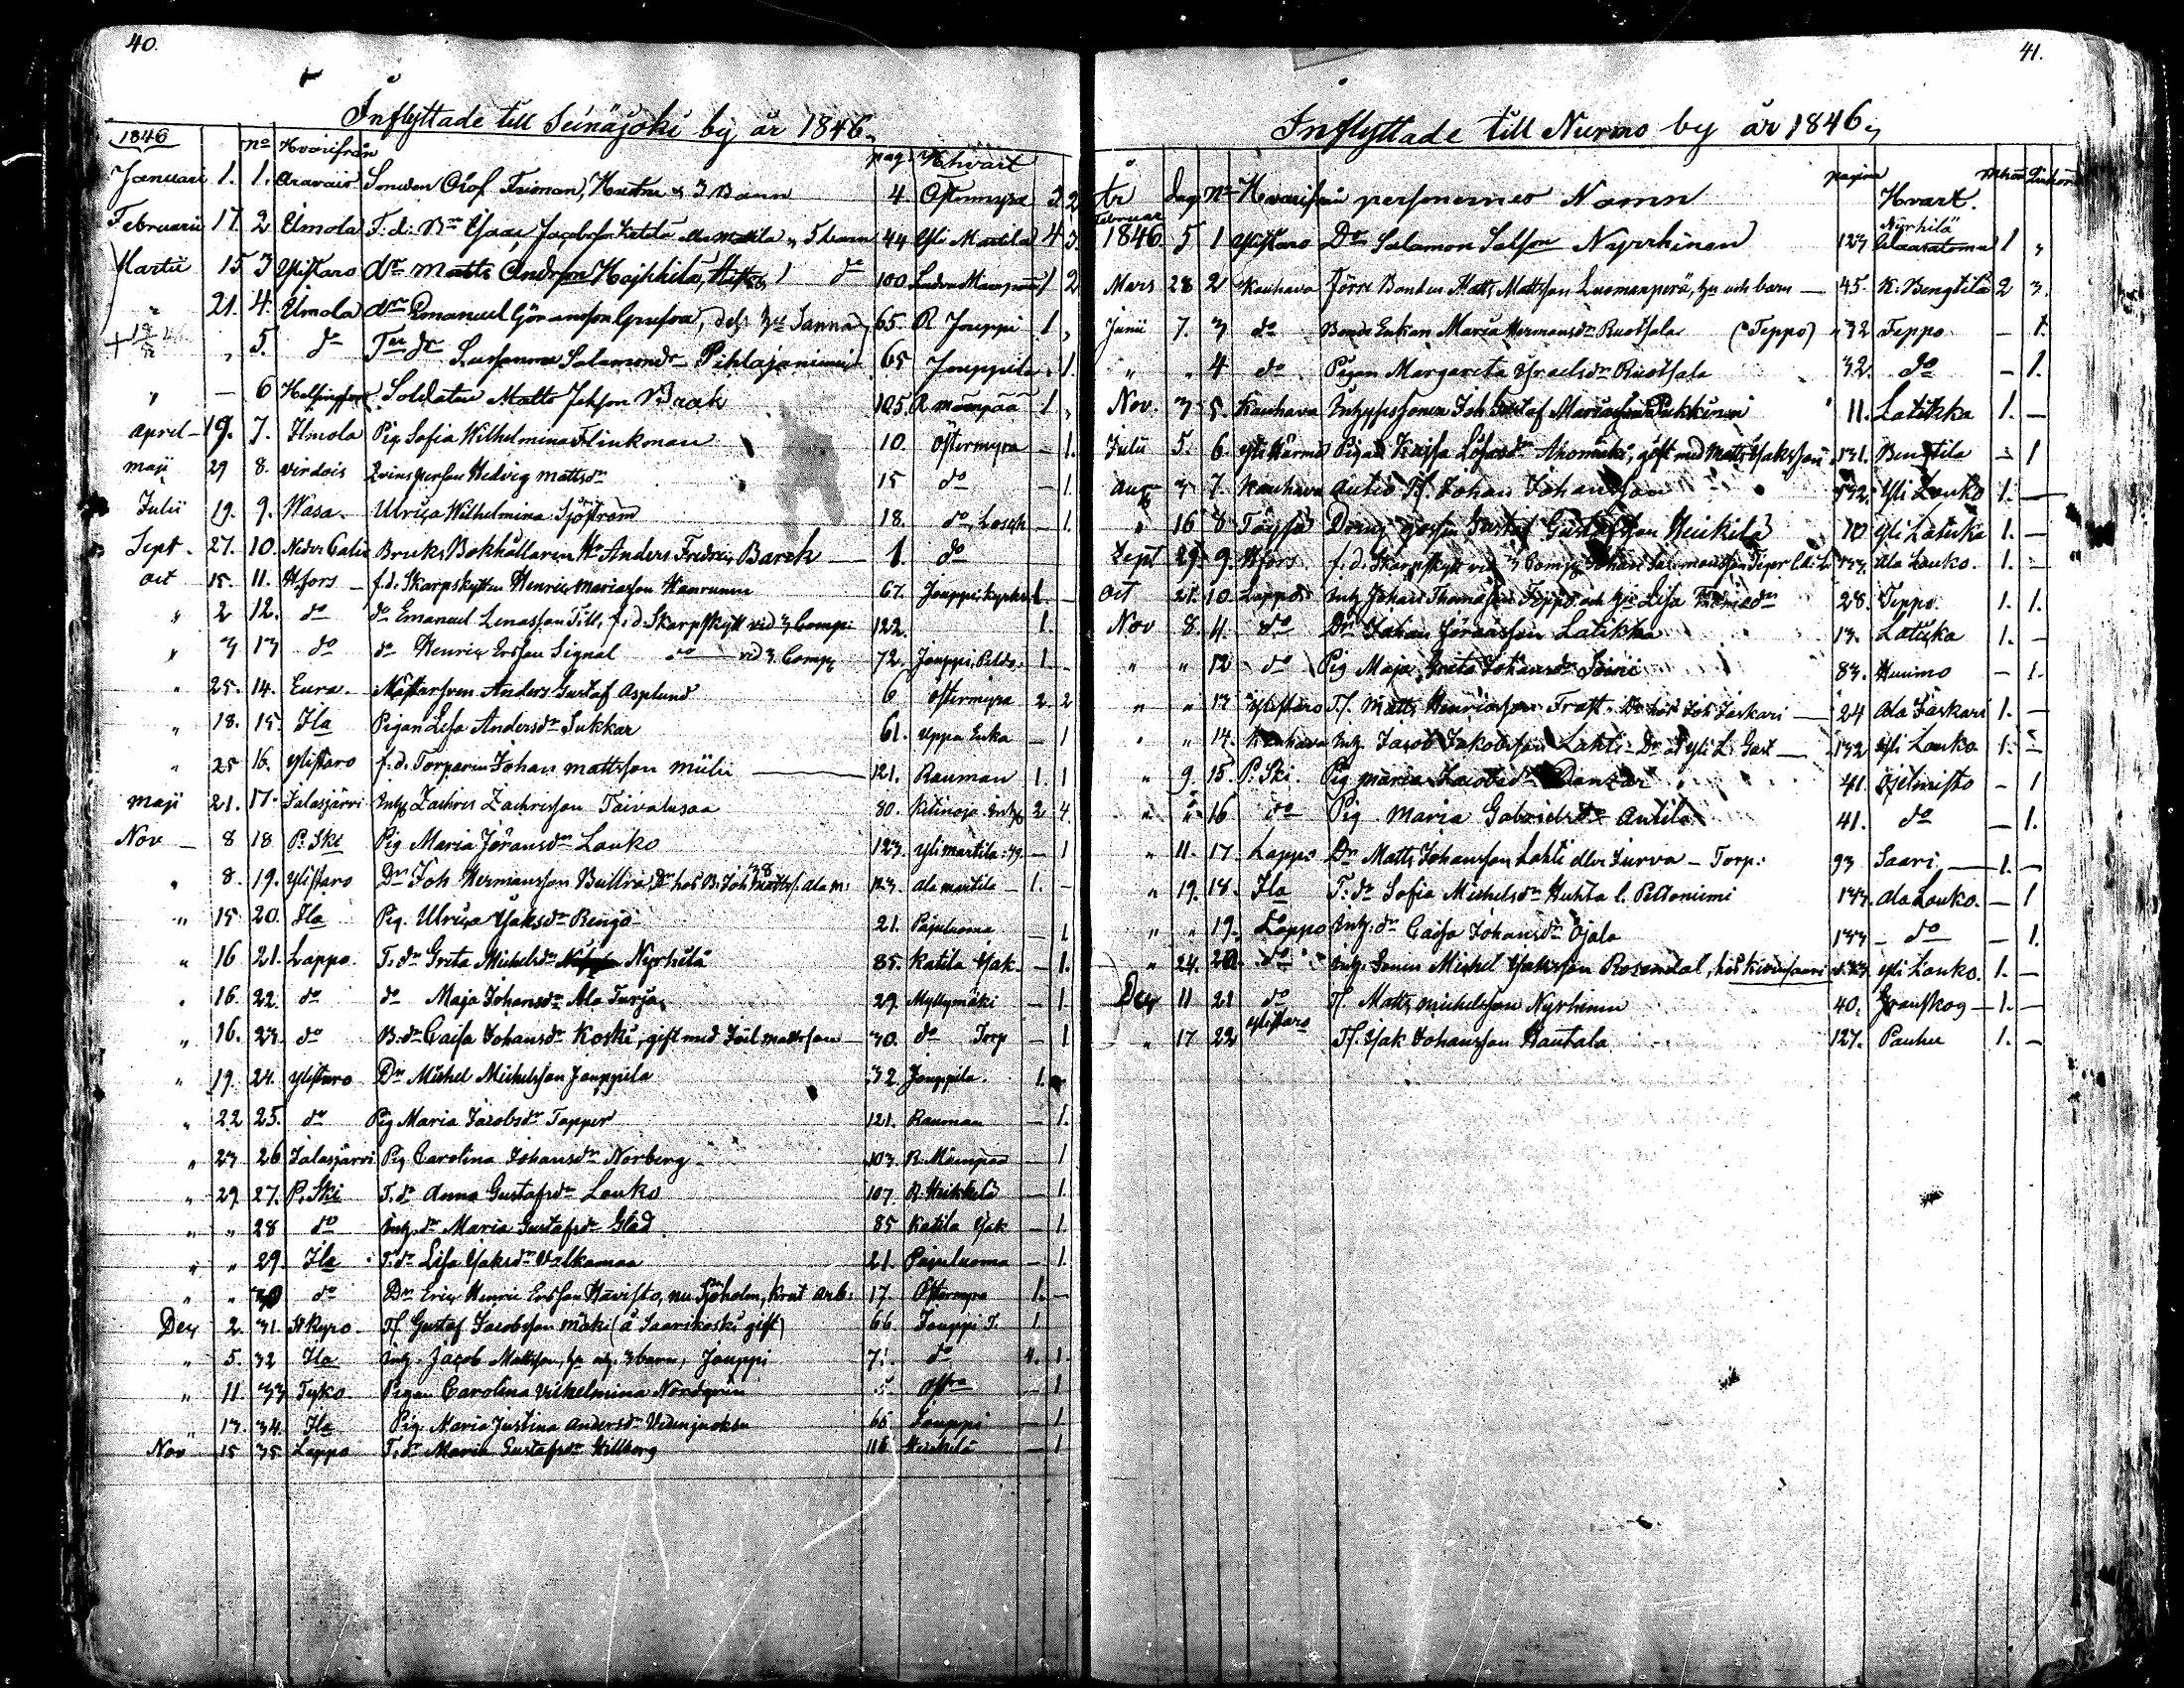 40.
Inflyttade till Seinäjoki by år 1846.
1846 No Hvarifrån pag: Hvart
Januari 1. 1. Oravais Smeden Olof Friman, Hustru & 3 Barn 4. Östermyra 3 2
Februarii 17 2 Ilmola F: d: Bn Isaac Jacobsson Katila 5 barn 44 Yli Martila 4 3
Martii 15 3 Ylistaro dn Matts Andersson 1 do 100. 1 2
" 21. 4. Ilmola dn Emanuel Göransson Sanna 65. R Jouppi 1 "
" 5. do Sussanna Salamonsdr Pihlajaniemi 65 Jouppila " 1
" — 6 Helsingfors Soldaten Matts Johsson 105. R Mämpää 1 "
April 19. 7. Ilmola Pig. Sofia Wilhelmina Flinkman 10. Östermyra — 1.
Maji 29 8. Virdois Qvinsperson Hedvig Mattsdr 15 do — 1.
Julii 19. 9. Wasa. Ulrica Wilhelmina Sjöström 18. do, — 1.
Sept. 27. 10. Bruks Bokhållaren Hr Anders Fredric Barck 1. do
Oct 15. 11. Hfors f.d. Skarpskytten Henric Mariasson 67. Jouppi 1. —
" 2 12. do do Emanuel Lenasson Till, f: d. Skarpskytt vid 3 Comp: 122. 1.
" 3 13 do do Henric Ersson Signal do vid 3. Comp 72. Jouppi, 1. —
" 25. 14. Eura. Mästersven Anders Gustaf Asplund 6 Östermyra 2 2
" 18. 15. Ila Pigan Lisa Andersdr Sukkar 61. Uppa — 1
" 25 16. Ylistaro f. d. Torparen Johan Mattsson 121. Rauman 1. 1
Maji 21. 17. Jalasjärvi Inh Zachris Zachrisson Taivalusaa 80. Kitinoja 2 4.
Nov — 8 18 P. Ski Pig Maria Jöransdr Louko 123. Yli Martila — 1
" 8. 19. Ylistaro Dn Joh Hermansson 123. Ala Martila — 1. —
" 15 20. Ila Pig. Ulrica Isaksdr Rengo 21. Pajuluoma — 1
" 16 21. Lappo. T. dr Greta Michelsdr Nyrhilä 85. Katila Isak — 1.
" 16. 22. do do Maja Johansdr Ala Turja 29. Myllymäki — 1
" 16. 23. do B. dr Caisa Johansdr Koski, gift med Joel Mattsson 30. do Torp — 1
" 19. 24. Ylistaro Dn Michel Michelsson Jouppila 32 Jouppila. 1.
" 22 25. do Pig Maria Jacobsdr Tapper 121. Rauman — 1.
" 23 26 Jalasjärvi Pig Carolina Johansdr Norberg 103. R. Mämpää — 1
" 29 27. P. Ski T. dr Anna Gustafsdr Louko 107. R. Heikkilä — 1.
" " 28 do Inh. dr Maria Gustafsdr Glad 85 Katila Isak — 1.
" " 29. Ila T. dr Lisa Isaksdr Valkamaa 21. Pajuluoma — 1.
" " 30 do Dn Eric Henric Ersson Havisto, nu Sjöholm, krut arb: 17. Östermyra 1. —
Dec 2 31. St Kyro Tf. Gustaf Jacobsson Mäki (å Saarikoski gift) 66. Jouppi T. 1.
" 5. 32 Ila Inh. Jacob Mattsson, hu och 3 barn, Jouppi 71. do 4. 1.
" 11 33 Tyko Pigan Carolina Vilhelmina Nordgrén — 1
" 13. 34. Ila Pig. Maria Justina Andersdr 66 Jouppi — 1
Nov 15 35. Lappo T. dr Maria Gustafsdr Hellberg 116. Heikkilä — 1
41.
Inflyttade till Nurmo by år 1846,
År Dag No Hvarifrån personernes Namn pagina Hvart. Mkön Qvkön
Februar Nyrhilä
1846. 5 1 Ylistaro Dn Salamon Salsson Nyrrhinen 123 1 "
Mars 28 2 Kauhava Förre Bonden Matts Mattsson Luomanperä, hu och barn 45. K. Bengtila 2 3.
Junii 7. 3 do Bonde Enkan Maria Hermansdr Ruotsala (Teppo) 32 Teppo — 1.
" " 4 do Pigan Margareta Israelsdr Ruotsala 32. do — 1.
Nov. 3 5. Kauhava Inhyssonen Joh Gustaf Mariasson Pukkinen 11. Latikka 1. —
Julii 5. 6. Yli Härmä Pigan Kaisa gift med Matts Isaksson 131. Bengtila — 1
Aug 3 7. Kauhava Johan Johansson 132. Yli Louko 1. —
" 16 8 Töysä Dreng gossen Gustaf Gustafsson Heikilä 10 Yli Latikka 1. —
Sept 29. 9. Hfors f. d. Skarpskytt vid 3 Comp Johan Salomonsson Tiger 133. Ala Louko. 1. —
Oct 21. 10 Lappo Inh Johan Thomasson Teppo och hu Lisa 28. Teppo. 1. 1.
Nov 8. 11. do Dn Johan Jöransson Latikka 13. Latikka 1. —
" " 12 do Pig Maja Greta Johansdr 83. Huumo — 1.
" " 13 Ylistaro Tf. Matts Henricsson Trast. Dr hos Joh Jäskari 24 Ala Jäskari 1. —
" " 14. Kauhava Inh. Jacob Jakobsson Lahti Dr å Yli L. Gård 132 Yli Louko 1. —
" 9. 15 P. Ski Pig Maria Jacobsdr 41. Ojelmisto — 1
" " 16 do Pig Maria Gabrielsdr Antila 41. do — 1.
" 11. 17. Lappo Dn Matts Johansson Lahti eller Jurva — Torp. 93 Saari — 1. —
" 19. 18. Ila T: dr Sofia Michelsdr Huhta l. Peltoniemi 133. Ala Louko. — 1
" " 19. Lappo Inh. dr Caisa Johansdr Ojala 133 — do — 1.
" 24. 20. do Inh. Sonen Michel Isaksson Rosendal, hos 133 Yli Louko. 1. —
Dec 11 21 do Tf. Matts Michelsson Nyrhinen 40. Granskog — 1. —
" 17 22 Ylistaro Tf. Isak Johansson Rautala 127. Pauhu 1. —